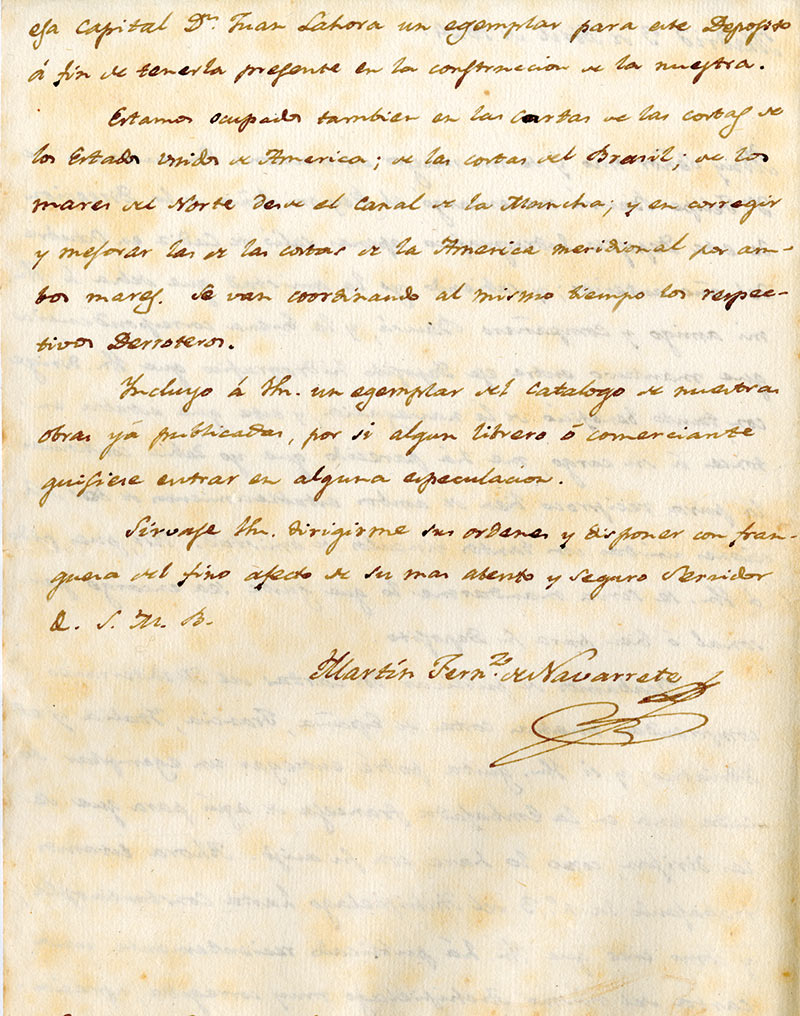 esa Capital Dn. Juan Lahora un egemplar para este Deposito
á fin de tenerla presente en la construccion de la nuestra.
Estamos ocupados tambien en las cartas de las costas de
los Estados Unidos de America; de las costas del Brasil; de los
mares del Norte desde el Canal de la Mancha; y en corregir
y mejorar las de las costas de la America meridional por am-
bos mares. Se van coordinando al mismo tiempo los respec-
tivos Derroteros.
Incluyo á Vm. un egemplar del catalogo de nuestras
obras yá publicadas, por si algun librero ó comerciante
quisiese entrar en alguna especulacion.
Sirvase Vm. dirigirme sus ordenes y disponer con fran-
queza del fino afecto de su mas atento y seguro Servidor
Q. S. M. B.
Martín Fernz. de Navarrete